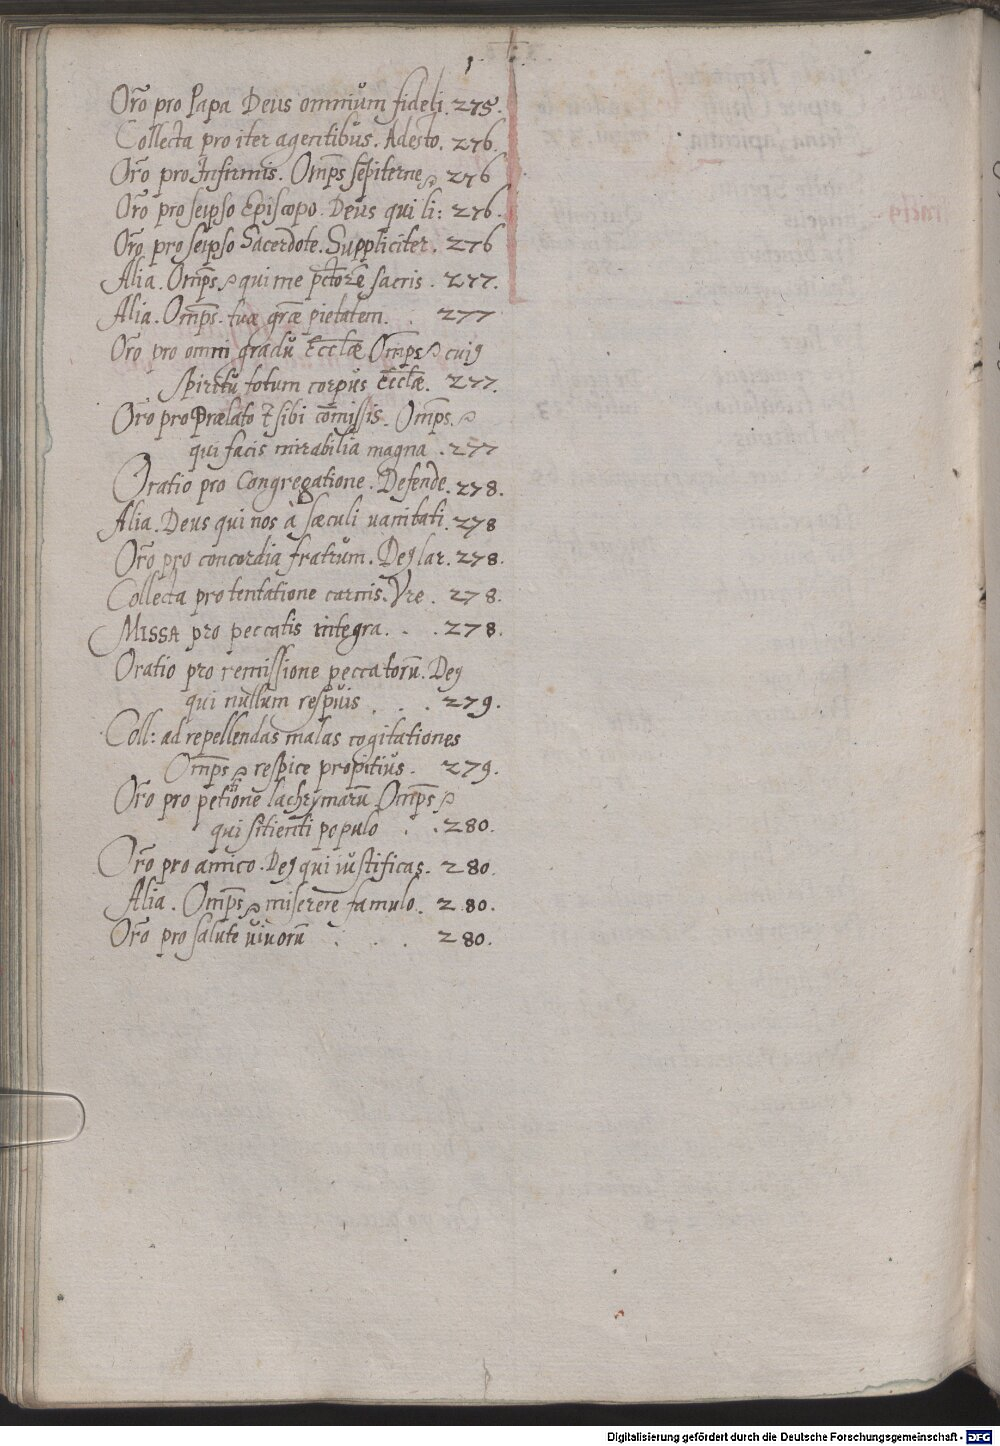 Orõ pro Papa Deus omnium fideli. 275.
Collecta pro iter agentibus. Adesto. 276.
Orõ pro Infirmis. Omp̄s sēpiterne 276
Orõ pro seipso Episcopo. Deus qui li: 276.
Orõ pro seipso Sacerdote. Suppliciter. 276
Alia. Omp̄s qui me p̄ctorē sacris. 277.
Alia. Omp̄s. tuæ grãe pietatem. . 277
Orõ pro omni gradū Eccłæ Omp̄s cuiꝯ
spiritū totum corpus Eccłæ. 277.
Orõ pro Prælato & sibi cõmissis. Omp̄s.
qui facis mirabilia magna . 277
Oratio pro Congregatione. Defende. 278.
Alia. Deus qui nos à sæculi vanitati. 278
Orõ pro concordia fratrum. Deꝯ lar. 278.
Collecta pro tentatione carnis. Vre. 278.
MISSA pro peccatis integra. . . 278.
Oratio pro remissione peccatorū. Deꝯ
qui nullum respuis . . . 279.
Coll: ad repellendas malas cogitationes
Omp̄s respice propitius. 279.
Orõ pro petitione lachrymarū Omp̄s
qui sitienti populo . . 280.
Orõ pro amico. Deꝯ qui iustificas. 280.
Alia. Omp̄s miserere famulo. 280.
Orõ pro salute vivorū . . . 280.
Digitalisierung gefördert durch die Deutsche Forschungsgemeinschaft - DFG